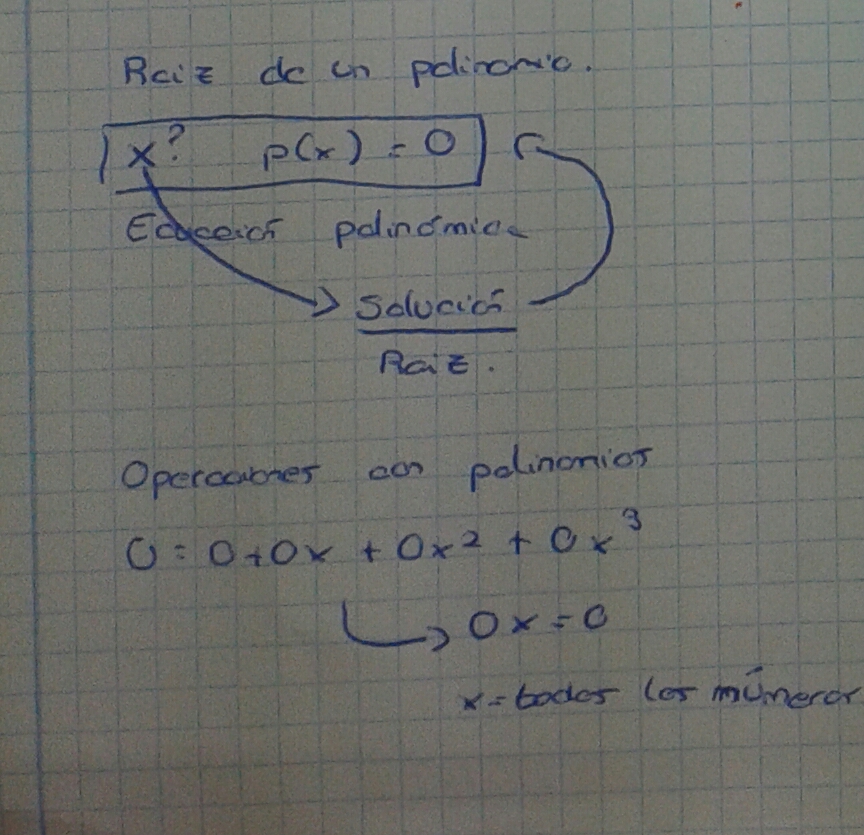 Raiz de un polinomio.
x? p(x) = 0
Ecuación polinómica
Solución
Raiz.
Operaciones con polinomios
0 = 0+0x + 0x² + 0x³
0x = 0
x = todos los números